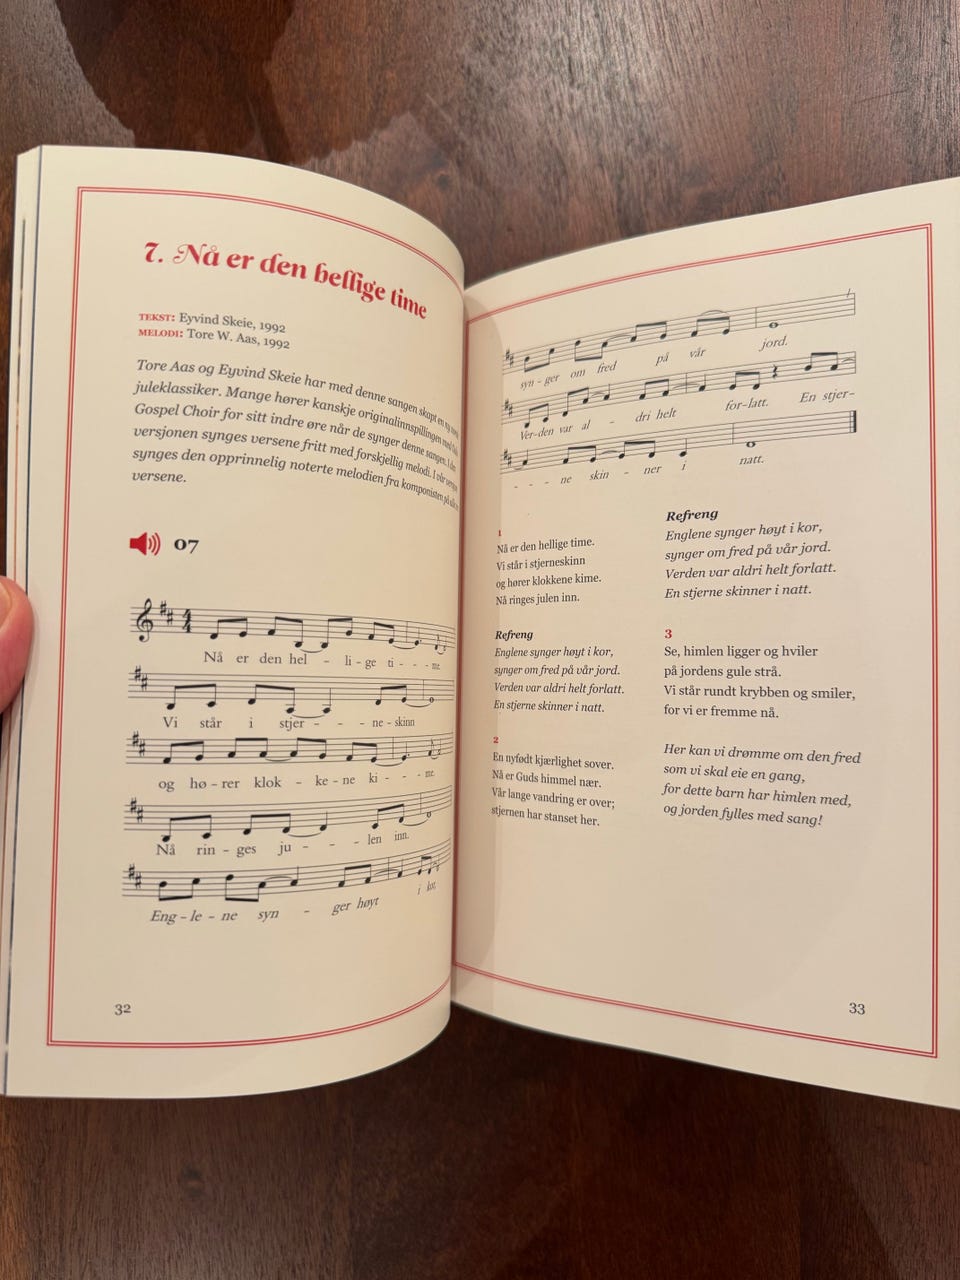 7. Nå er den hellige time
TEKST: Eyvind Skeie, 1992
MELODI: Tore W. Aas, 1992
Tore Aas og Eyvind Skeie har med denne sangen skapt en ny
juleklassiker. Mange hører kanskje originalinnspillingen med Oslo
Gospel Choir for sitt indre øre når de synger denne sangen. I den
versjonen synges versene fritt med forskjellig melodi. I vår versjon
synges den opprinnelig noterte melodien fra komponisten på alle
versene.
07
Nå er den hel - li - ge ti - - - me.
Vi står i stjer - - - ne - skinn
og hø - rer klok - ke - ne ki - - - me.
Nå rin - ges ju - - - len inn.
Eng - le - ne syn - ger høyt i kor,
32
syn - ger om fred på vår jord.
Ver - den var al - dri helt for - latt. En stjer -
- - - ne skin - ner i natt.
1
Nå er den hellige time.
Vi står i stjerneskinn
og hører klokkene kime.
Nå ringes julen inn.
Refreng
Englene synger høyt i kor,
synger om fred på vår jord.
Verden var aldri helt forlatt.
En stjerne skinner i natt.
2
En nyfødt kjærlighet sover.
Nå er Guds himmel nær.
Vår lange vandring er over;
stjernen har stanset her.
Refreng
Englene synger høyt i kor,
synger om fred på vår jord.
Verden var aldri helt forlatt.
En stjerne skinner i natt.
3
Se, himlen ligger og hviler
på jordens gule strå.
Vi står rundt krybben og smiler,
for vi er fremme nå.
Her kan vi drømme om den fred
som vi skal eie en gang,
for dette barn har himlen med,
og jorden fylles med sang!
33